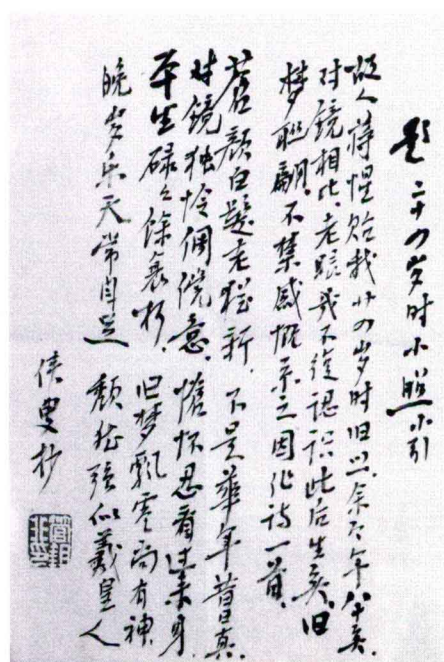 题二十四岁时小照小引
故人诗惺贻我廿四岁时旧照,余今年八十矣,
对镜相比,老眼几不复认识此后生矣,旧
梦联翩,不禁感慨系之,因作诗一首,
苍颜白髮老 新,不是华年昔日真,
对镜独怜倜傥意,怆怀忍看 身,
平生碌々余衰朽,旧梦飘零尚有神,
晚岁乐天常自足 颓 强似羲皇人
叟抄